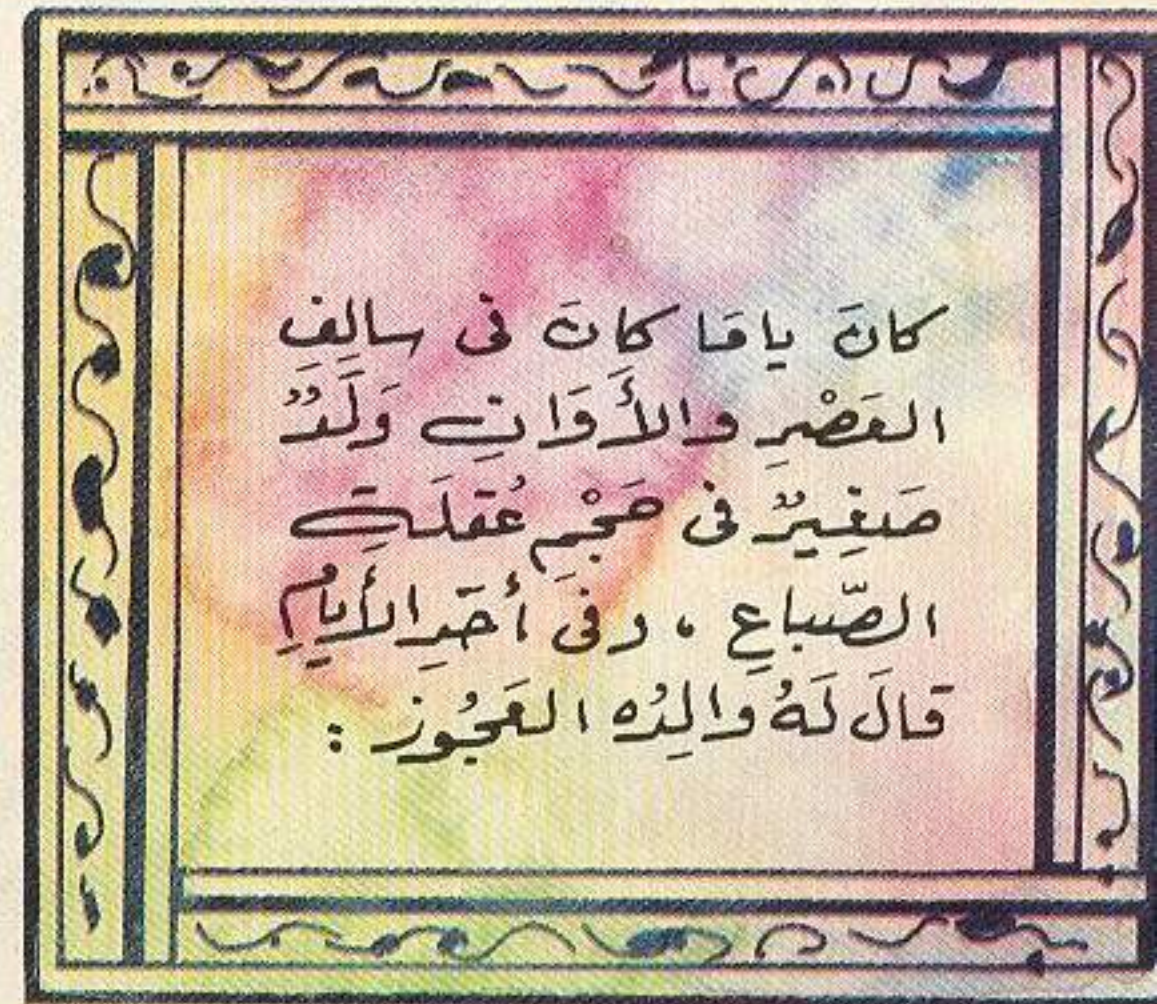 كانَ يامَا كانَ فى سالِفِ
العَصْرِ والأَوَانِ وَلَدٌ
صَغِيرٌ فى حَجْمِ عُقلَةِ
الصّباعِ ، وفى أحَدِ الأيامِ
قالَ لَهُ والِدُه العَجُوز :